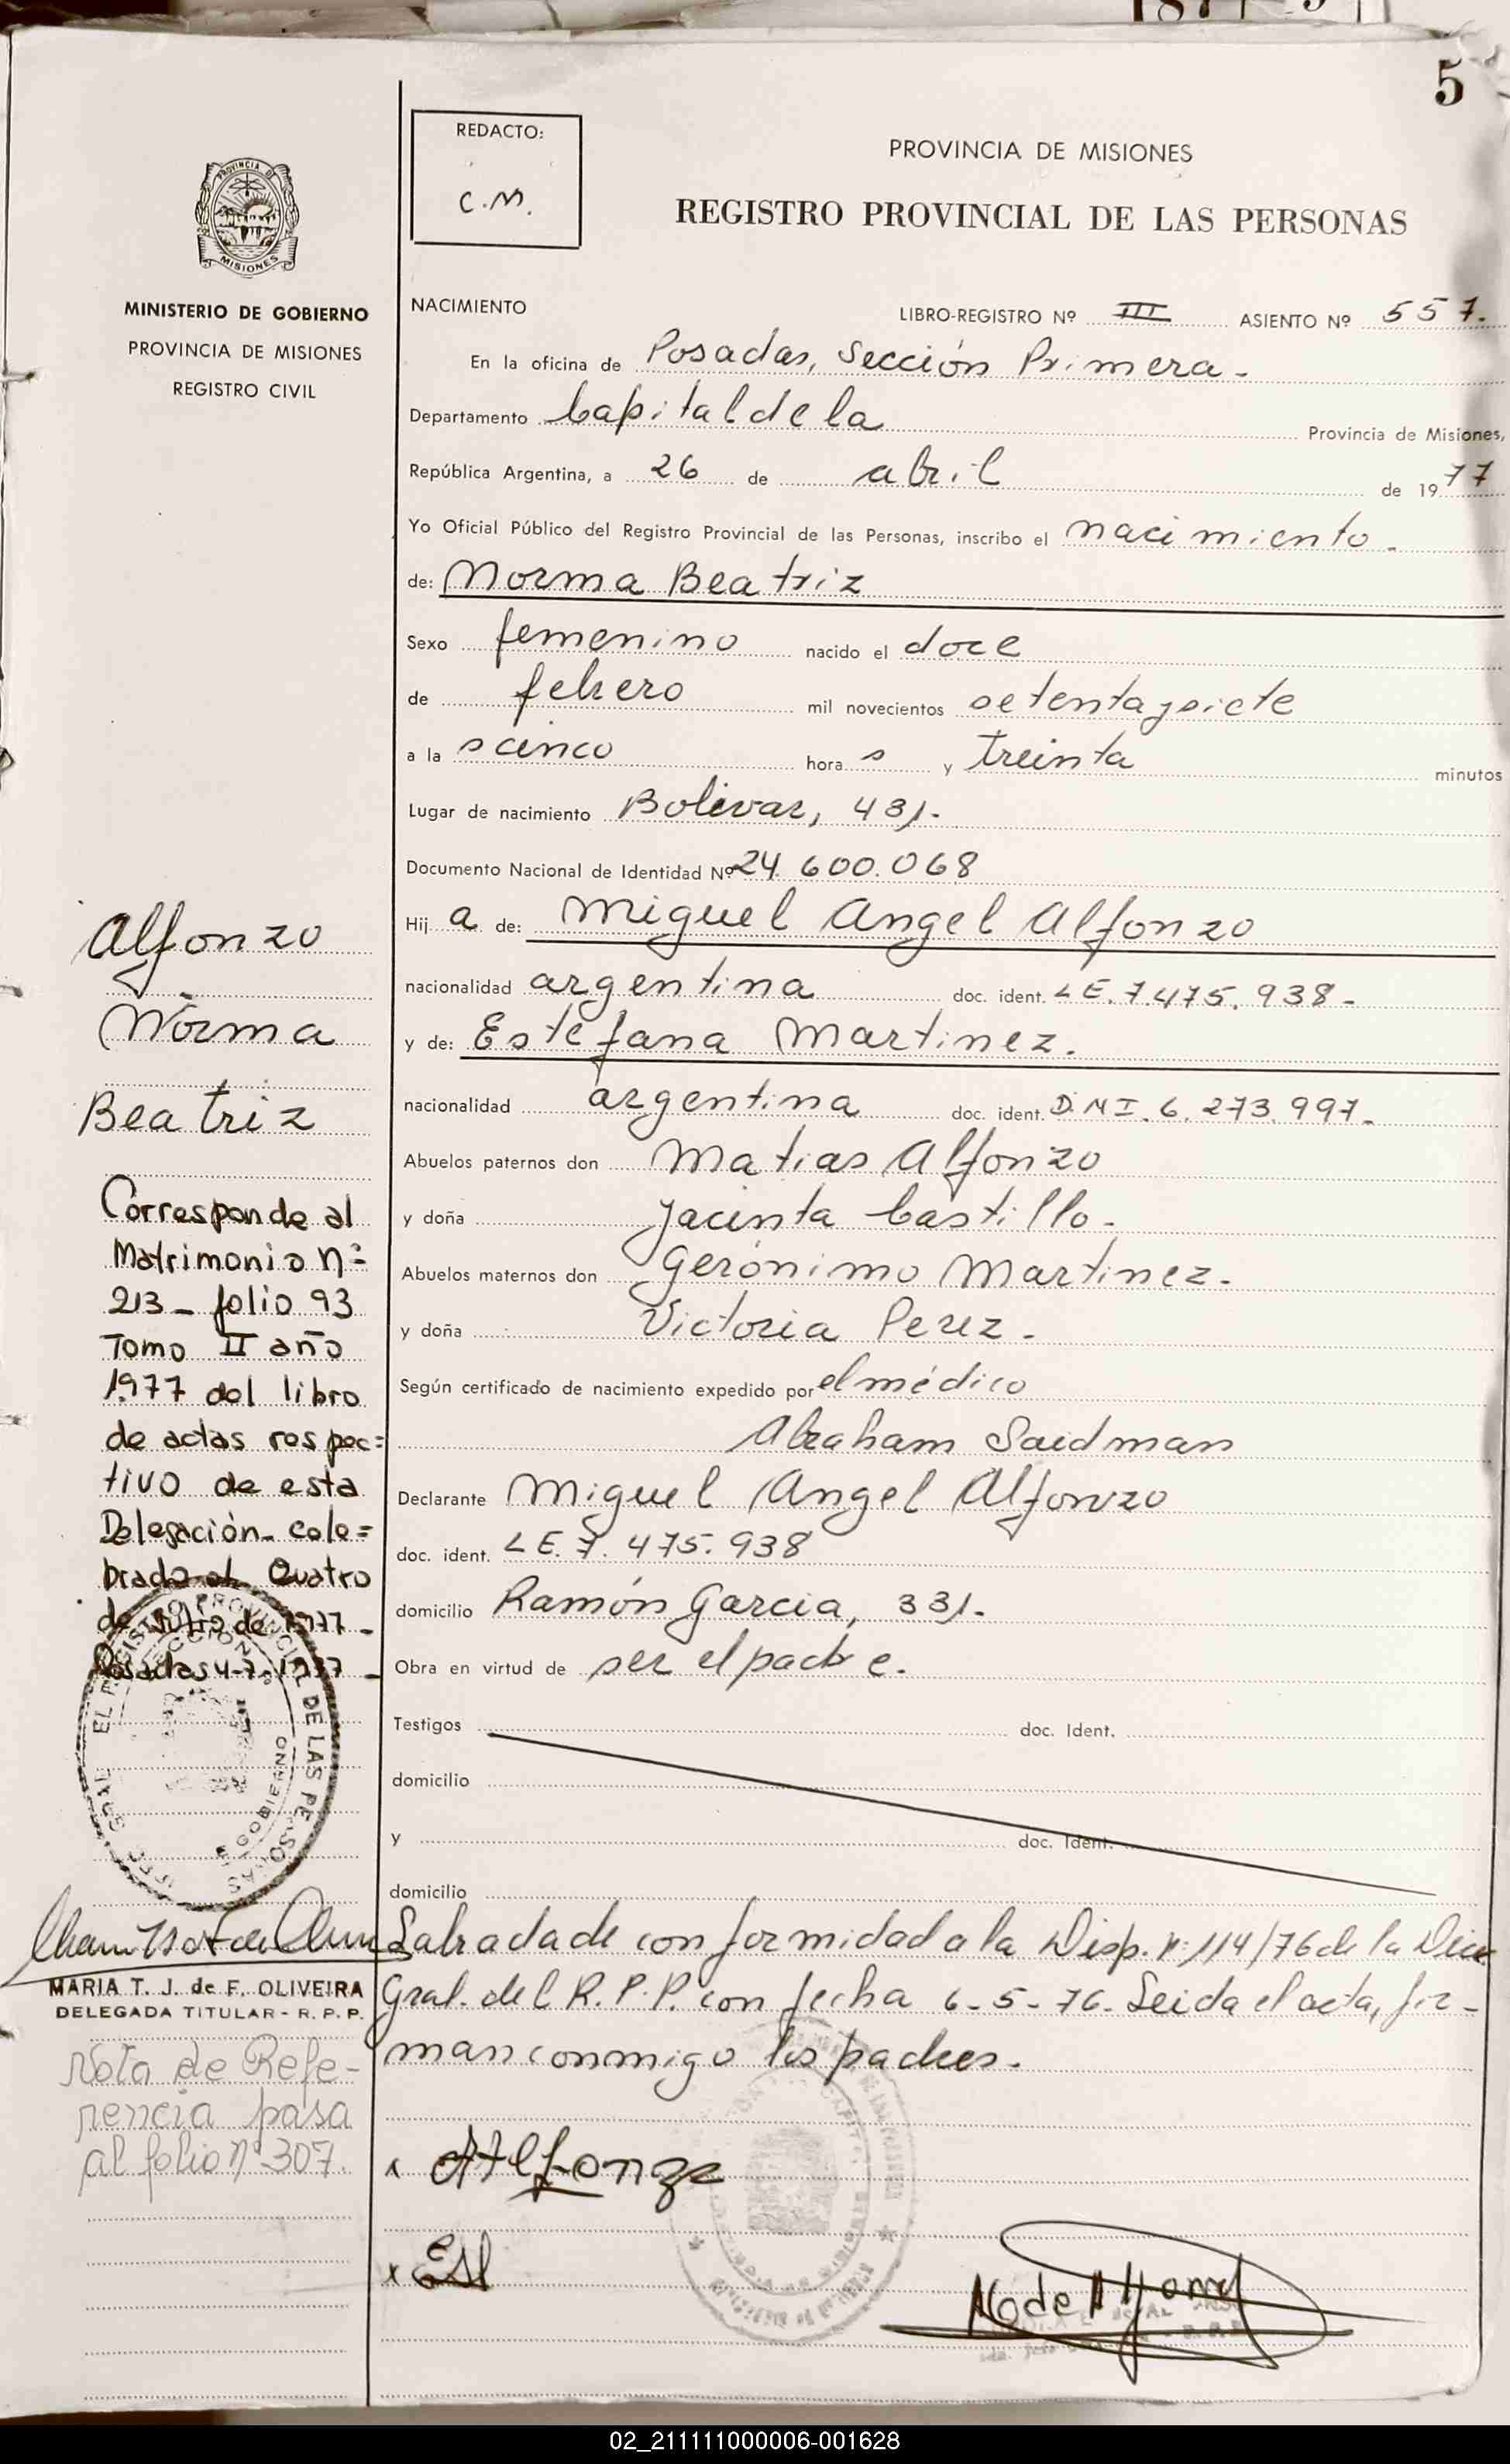 5
REDACTO:
C.M.
PROVINCIA DE MISIONES
REGISTRO PROVINCIAL DE LAS PERSONAS
MISIONES
MINISTERIO DE GOBIERNO
PROVINCIA DE MISIONES
REGISTRO CIVIL
NACIMIENTO LIBRO-REGISTRO Nº III ASIENTO Nº 557.
En la oficina de Posadas, Sección Primera-
Departamento Capital de la Provincia de Misiones,
República Argentina, a 26 de abril de 1977
Yo Oficial Público del Registro Provincial de las Personas, inscribo el nacimiento-
de: Norma Beatriz
Sexo femenino nacido el doce
de febrero mil novecientos setenta y siete
a la s cinco hora s y treinta minutos
Lugar de nacimiento Bolivar, 431.-
Documento Nacional de Identidad Nº 24.600.068
Hij a de: Miguel Angel Alfonzo
nacionalidad argentina doc. ident. L.E. 7.475.938-
y de: Estefana Martinez.
nacionalidad argentina doc. ident. D.N.I. 6.273.997-
Abuelos paternos don Matias Alfonzo
y doña Jacinta Castillo-
Abuelos maternos don Gerónimo Martinez-
y doña Victoria Perez-
Según certificado de nacimiento expedido por el médico
Abraham Saidman
Declarante Miguel Angel Alfonzo
doc. ident. L.E. 7.475.938
domicilio Ramón Garcia, 331.-
Obra en virtud de ser el padre.
Testigos doc. Ident.
domicilio
y doc. Ident.
domicilio
Labrada de conformidad a la Disp. Nº 114/76 de la Dicc
Gral. del R.P.P. con fecha 6-5-76. Leida el acta, fir-
man conmigo los padres.
x Alfonzo
x
Alfonzo
Norma
Beatriz
Corresponde al
Matrimonio nº
213- folio 93
Tomo II año
1977 del libro
de actas respec=
tivo de esta
Delegación- cele=
brado el Cuatro
de Julio de 1977-
Posadas 4-7-1977-
MARIA T. J. de F. OLIVEIRA
DELEGADA TITULAR - R. P. P.
Nota de Refe-
rencia pasa
al folio nº 307.
02_211111000006-001628